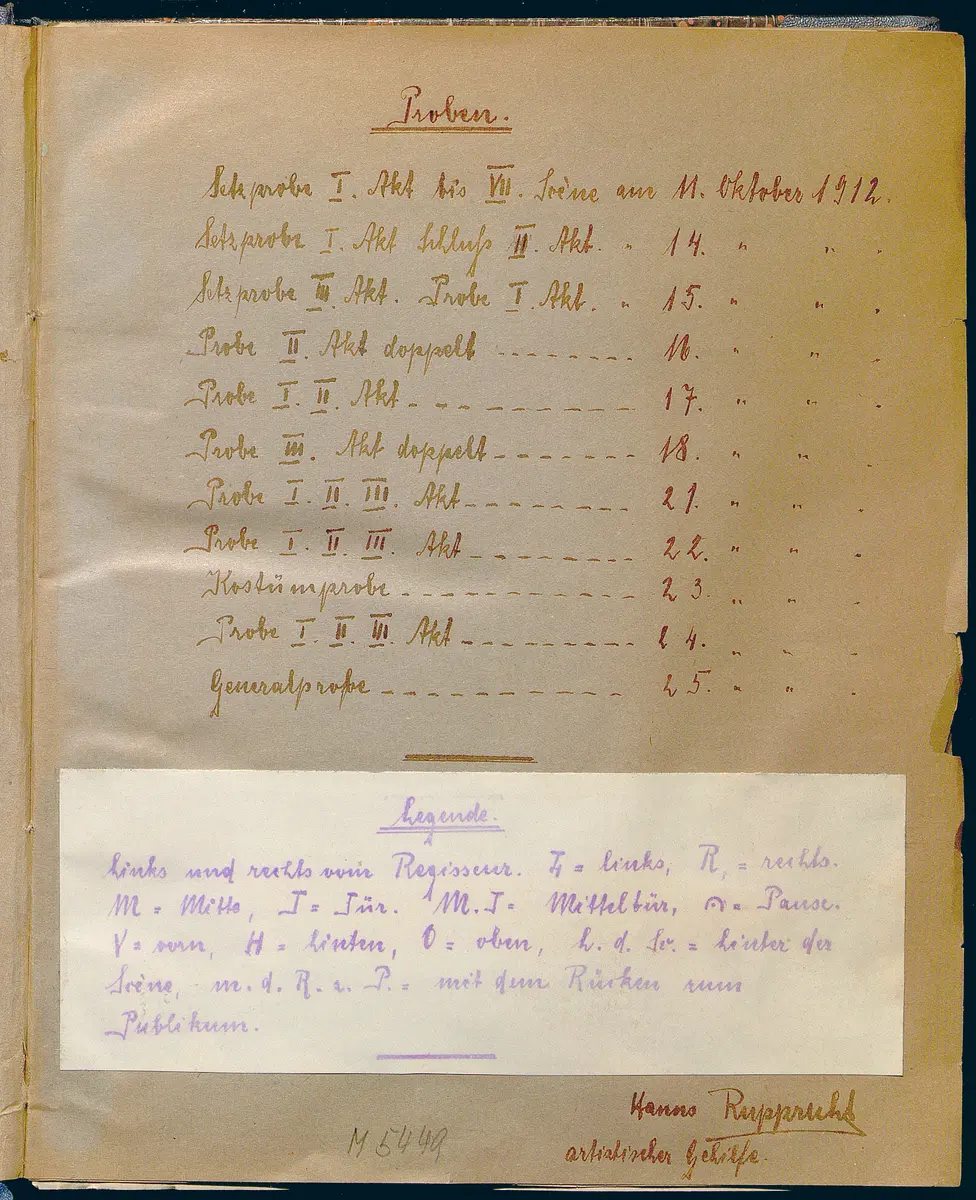 Proben.
Setzprobe I. Akt bis VII. Scène am 11. Oktober 1912.
Setzprobe I. Akt Schluß II. Akt. " 14. " " .
Setzprobe III. Akt. Probe I. Akt. " 15. " " .
Probe II. Akt doppelt -------- 16. " " .
Probe I. II. Akt ---------- 17. " " .
Probe III. Akt doppelt ------- 18. " " .
Probe I. II. III. Akt -------- 21. " " .
Probe I. II. III. Akt -------- 22. " " .
Kostümprobe ----------- 23. " " .
Probe I. II. III. Akt -------- 24. " " .
Generalprobe ----------- 25. " " .
Legende.
Links und rechts vom Regisseur. L = links, R. = rechts.
M = Mitte, T = Tür. M.T = Mitteltür, = Pause.
V = vorn, H = hinten, O = oben, h. d. Sc. = hinter der
Scène, m. d. R. z. P. = mit dem Rücken zum
Publikum.
Hanns Rupprecht
artistischer Gehilfe.
M 5449